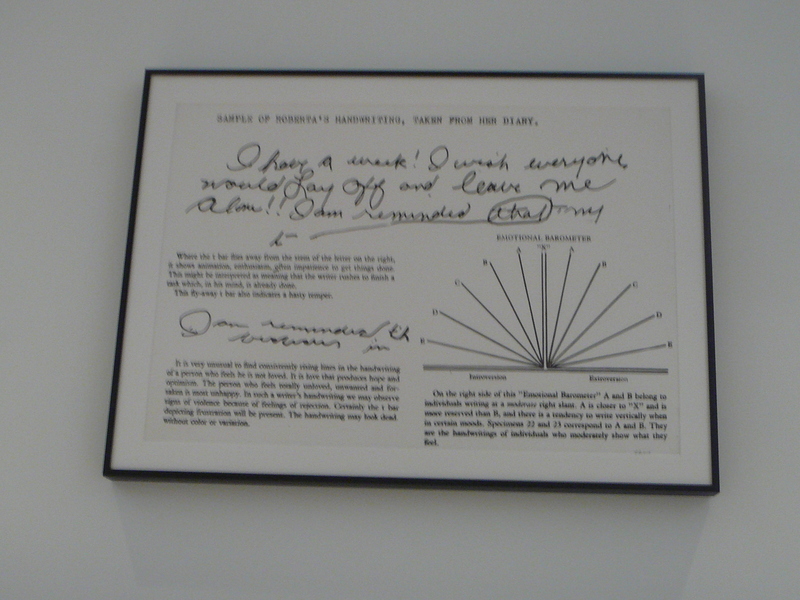 SAMPLE OF ROBERTA'S HANDWRITING, TAKEN FROM HER DIARY.
I have a week! I wish everyone
would Lay off and leave me
alone!! I am reminded that my
t-
Where the t bar flies away from the stem of the letter on the right,
it shows animation, enthusiasm, often impatience to get things done.
This might be interpreted as meaning that the writer rushes to finish a
task which, in his mind, is already done.
This fly-away t bar also indicates a hasty temper.
I am reminded th
in
It is very unusual to find consistently rising lines in the handwriting
of a person who feels he is not loved. It is love that produces hope and
optimism. The person who feels totally unloved, unwanted and for-
saken is most unhappy. In such a writer's handwriting we may observe
signs of violence because of feelings of rejection. Certainly the t bar
depicting frustration will be present. The handwriting may look dead
without color or variation.
EMOTIONAL BAROMETER
"X"
A A
B B
C C
D D
E E
Introversion Extroversion
On the right side of this "Emotional Barometer" A and B belong to
individuals writing at a moderate right slant. A is closer to "X" and is
more reserved than B, and there is a tendency to write vertically when
in certain moods. Specimens 22 and 23 correspond to A and B. They
are the handwritings of individuals who moderately show what they
feel.